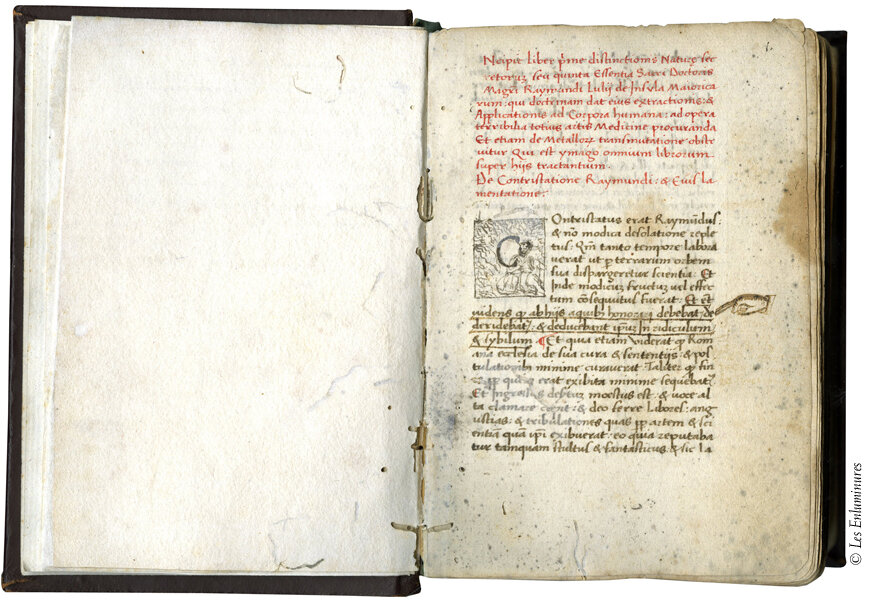 Ncipit liber p̄me distinctionis Nature sec
retorum seu quinta Essentia Sacri Doctoris
Magri Raymundi Lulij de Insula Maiorica
rum: qui doctrinam dat eius extractionis: &
Applicationis ad Corpora humana: ad opera
terribilia totius artis Medicine procuranda
Et etiam de Metallorꝫ transmutatione
Qui est ymago omnium librorum
super hijs tractantium.
De Contristatione Raymundi: & Eius la
mentatione:
C
Ontristatus erat Raymūdus
& nō modica desolatione reple
tus: Qm̄ tanto tempore labora
verat ut p̄ terrarum orbem
sua dispargeretur scientia: Et
Inde modicuȝ fructuȝ vel effec
tum cōsequutus fuerat: Et
videns qꝫ abhijs aquibꝫ honorari debebat de
deridebatꝫ: & deducebant ipm̄ In ridiculum
& sybilum ¶ Et quia etiam viderat qꝫ Rom
ana ecclesia de sua cura & sententijs & pos
tulationibꝫ minime curaverat Taliter qꝫ fin
erat exibita minime sequebatꝫ
Et moestus est: & voce al
ta clamare & deo ferre Labores: ang
ustias: & tribulationes quas artem & sci
entiām quam ip̄i exibuerat: eo quia reputaba
tur tamquam stultus & fantasticus & sic la
© Les Enluminures